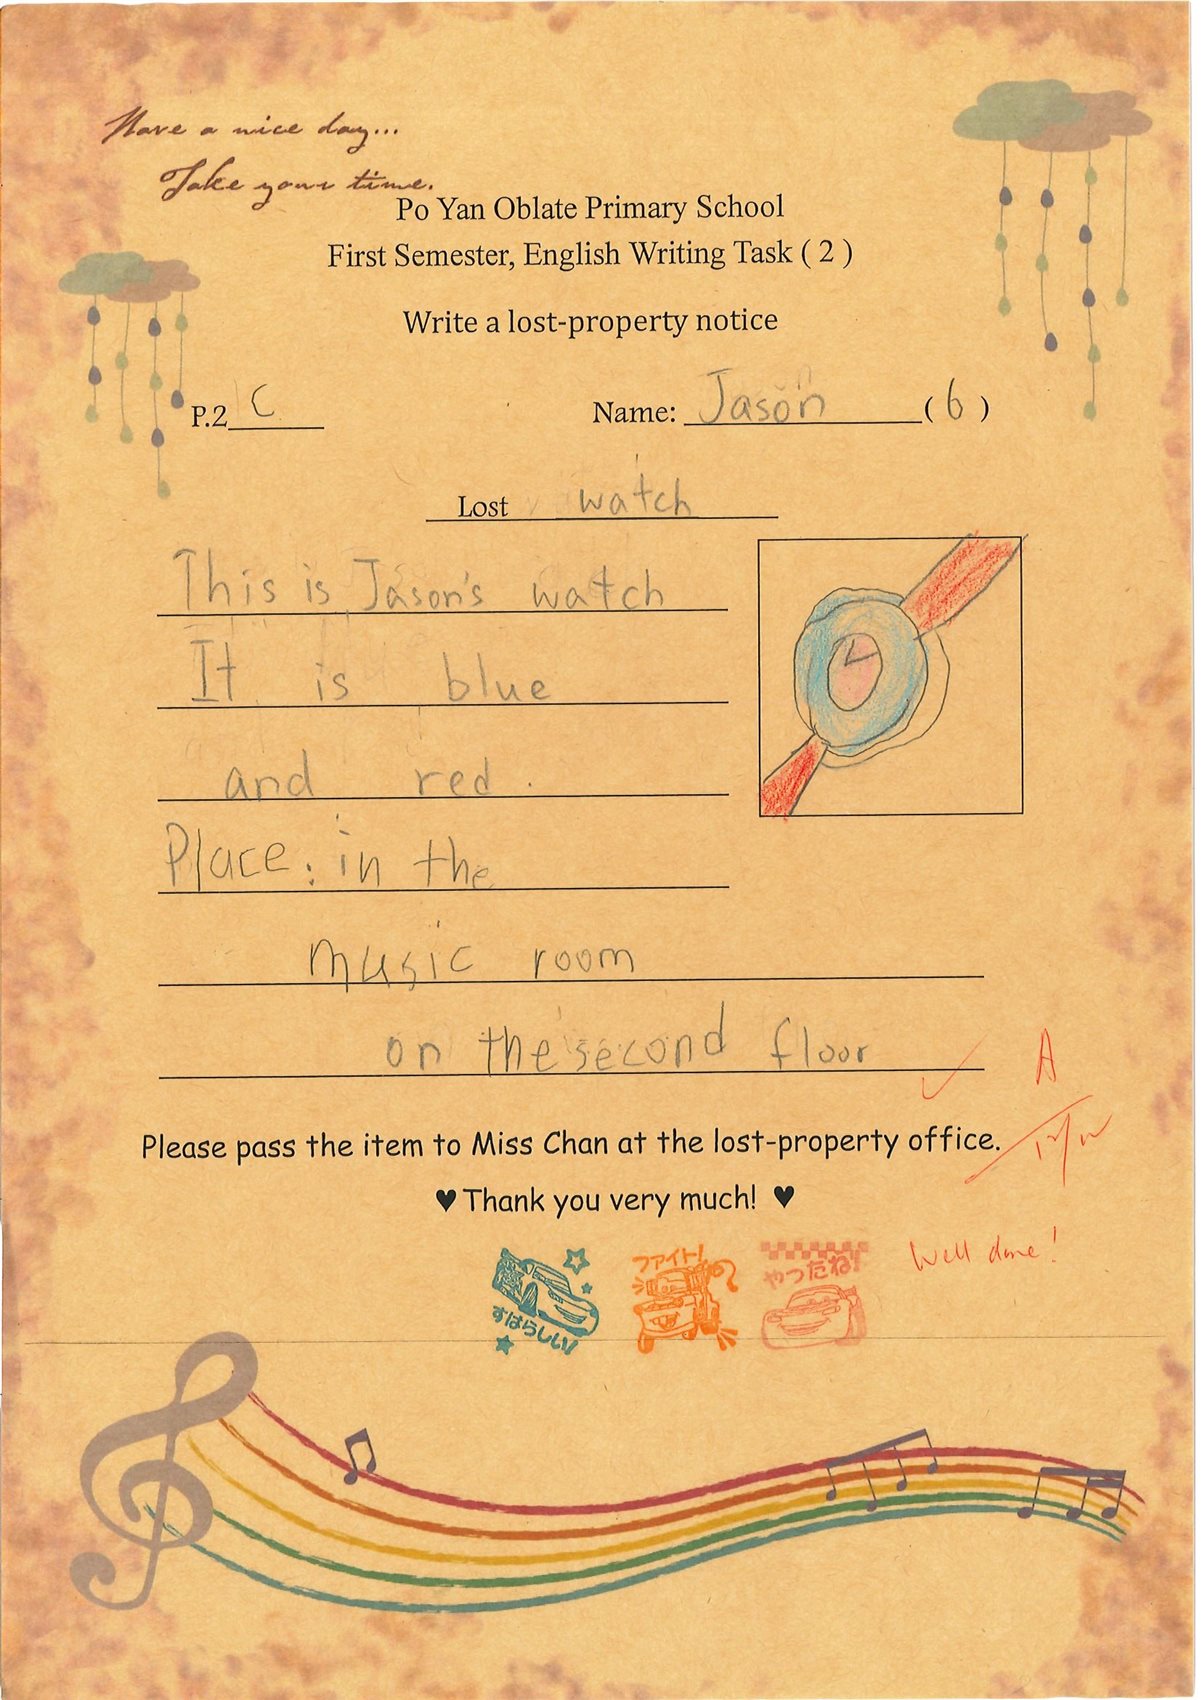 Have a nice day...
Take your time.
Po Yan Oblate Primary School
First Semester, English Writing Task ( 2 )
Write a lost-property notice
P.2 C Name: Jason ( 6 )
Lost watch
This is Jason's watch
It is blue
and red .
Place : in the
music room
on the second floor
A
Please pass the item to Miss Chan at the lost-property office.
♥ Thank you very much! ♥
Well done!
すばらしい!
ファイト!
やったね!